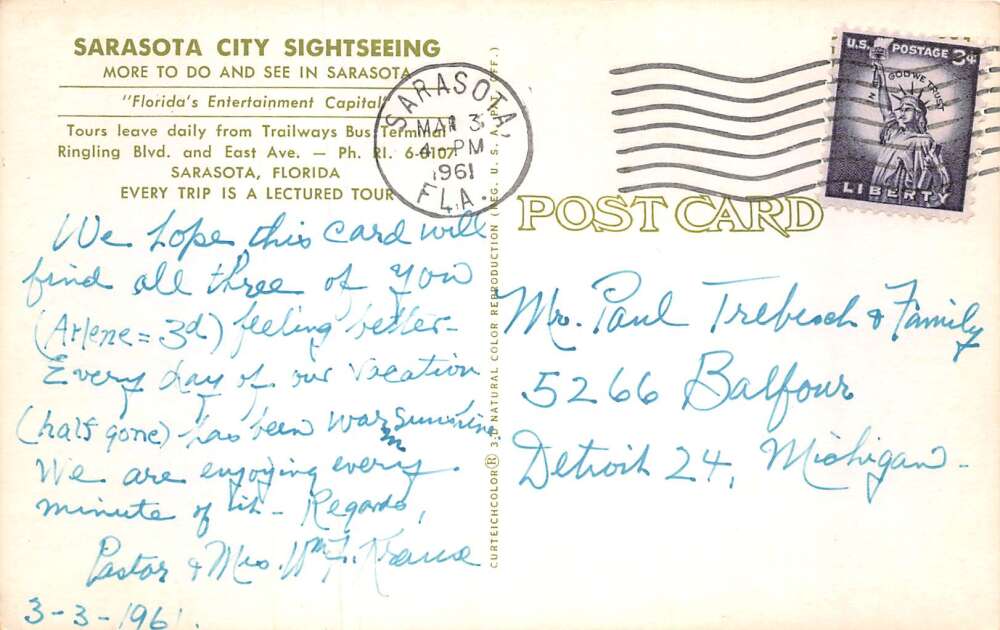 SARASOTA CITY SIGHTSEEING
MORE TO DO AND SEE IN SARASOTA
"Florida's Entertainment Capital"
Tours leave daily from Trailways Bus Terminal
Ringling Blvd. and East Ave. — Ph. RI. 6-0107
SARASOTA, FLORIDA
EVERY TRIP IS A LECTURED TOUR
SARASOTA,
MAR 3
4-PM
1961
FLA.
U.S. POSTAGE 3¢
IN GOD WE TRUST
LIBERTY
POST CARD
CURTEICHCOLOR® 3-D NATURAL COLOR REPRODUCTION (REG. U. S. A. PAT. OFF.)
We hope this card will
find all three of you
(Arlene = 3d) feeling better-
Every day of our vacation
(half gone) has been warm sunshine
We are enjoying every
minute of it - Regards,
Pastor & Mrs. Wm F. Krause
3-3-1961
Mr. Paul Trebesch & Family
5266 Balfour
Detroit 24, Michigan-